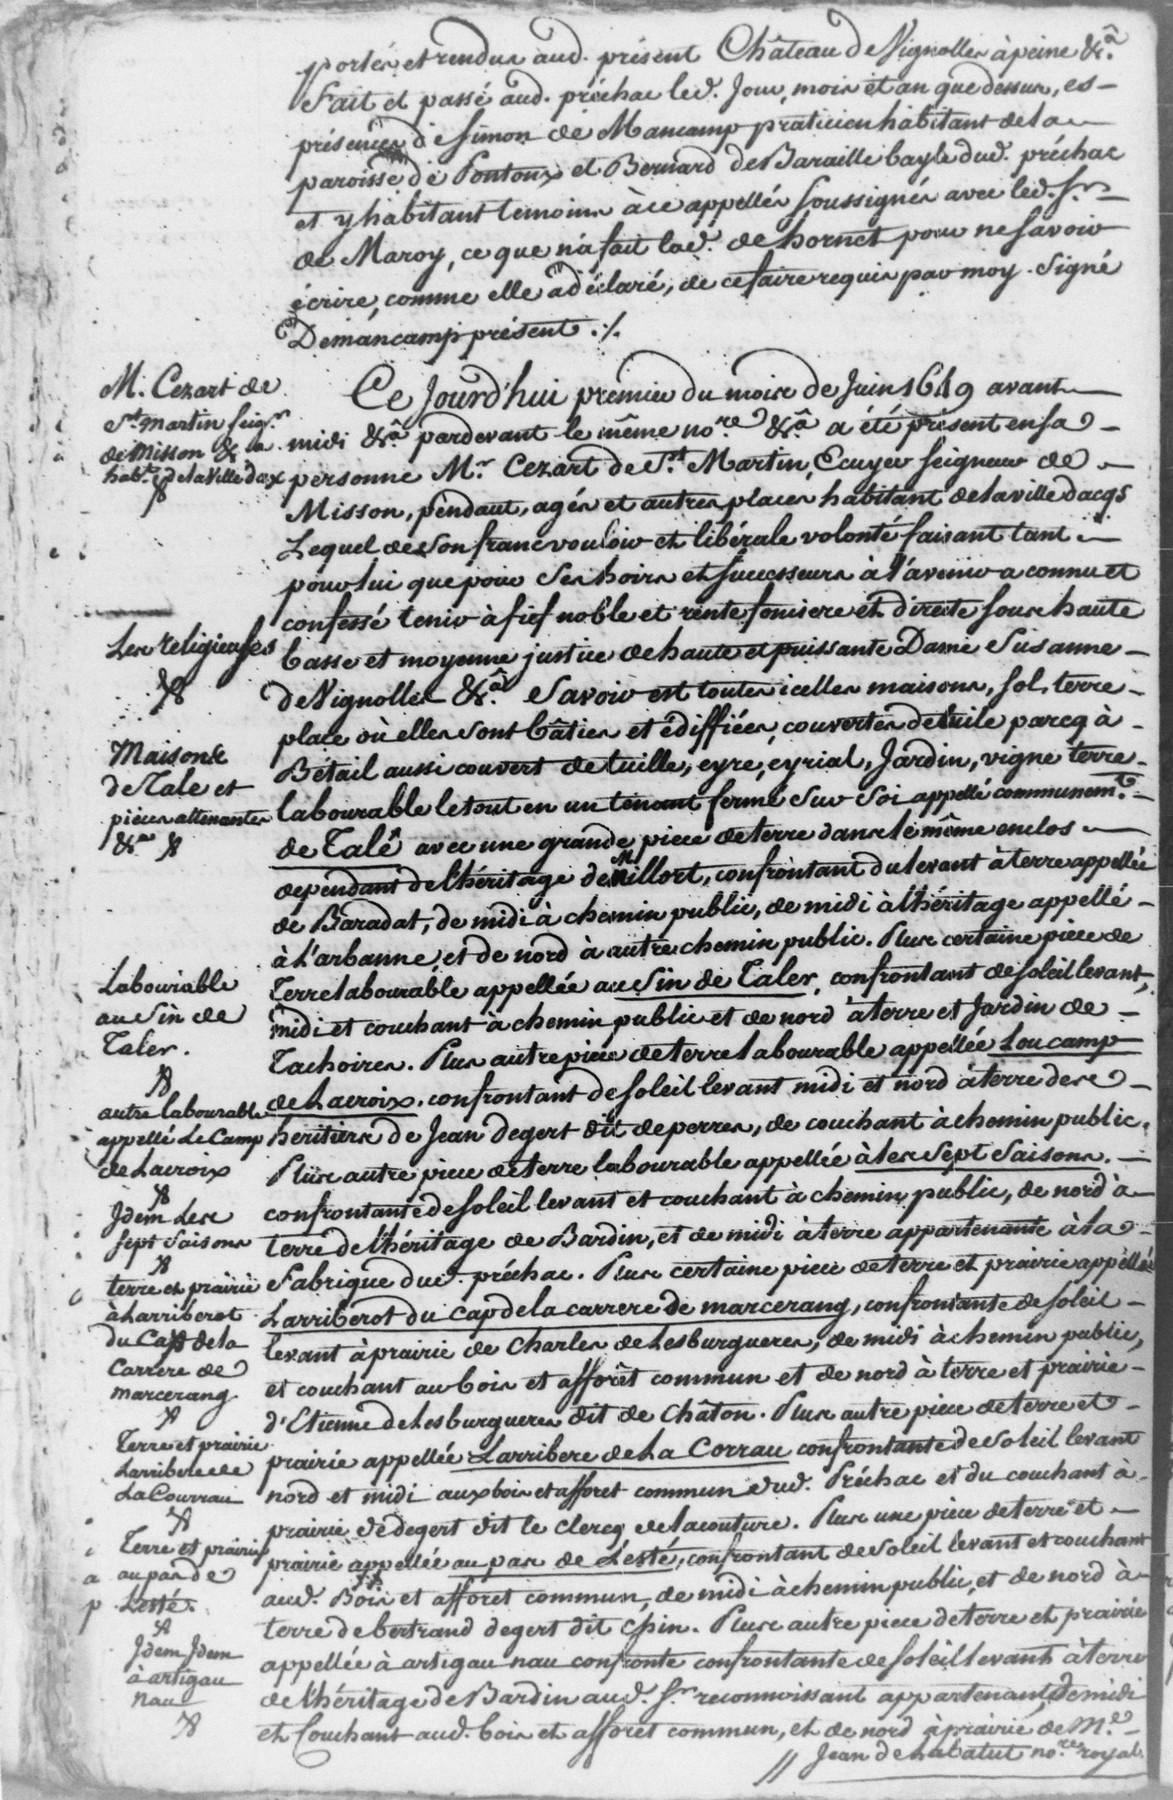 portés et rendus aud. présent Château de Vignolles à peine &ª.
Fait et passé aud. préchac led. Jour, mois et an que dessus, es-
présences de Simon de Mancamp praticien habitant de la
paroisse de Pontoux et Bernard de Baraille bayle dud. préchac
et y habitant temoins à ce appellés soussignés avec led. Sr.
de Maroy, ce que n'a fait lad. de hornet pour ne savoir
écrire, comme elle a déclaré, de ce faire requis par moy. Signé
Demancamp présent ./.
M. Cezart de
St. martin seigr.
de Misson & a
habt. de la Ville dax
Ce Jourd'hui premier du mois de Juin 1619 avant
midi &ª. pardevant le même nore. &ª. a été présent en sa
personne Mr. Cezart de St. Martin, Ecuyer seigneur de
Misson, pendant, agés et autres places, habitant de la ville dacqs
Lequel de son franc vouloir et libérale volonté faisant tant
pour lui que pour ses hoirs et successeurs à l'avenir a connu et
confessé tenir à fief noble et rente fonsiere et directe sous haute
basse et moyenne justice de haute et puissante Dame Susanne
de Vignolles &ª. Savoir est toutes icelles maisons, sol, terre
place où elles sont bâties et édiffiées, couvertes de tuile parcq à
Bétail aussi couvert de tuille, eyre, eyrial, Jardin, vigne terre
labourable le tout en un tenant fermé sur soi appellé communemt.
de Talê avec une grande piece de terre dans le même enclos
dependant de l'héritage de Millort, confrontant du levant à terre appellée
de Baradat, de midi à chemin public, de midi à l'héritage appellé
à L'arbanne, et de nord à autre chemin public. Plus certaine piece de
Terre labourable appellée au Sin de Taler, confrontant de soleil levant,
midi et couchant à chemin public et de nord à terre et Jardin de
Tachoires. Plus autre piece de terre labourable appellée Lou camp
de Lacroix, confrontant de soleil levant midi et nord à terre des
heritiers de Jean degert dit de perres, de couchant à chemin public.
Plus autre piece de terre labourable appellée à les Sept Saisons.
confrontante de soleil levant et couchant à chemin public, de nord à
terre de l'héritage de Bardin, et de midi à terre appartenante à la
Fabrique dud. préchac. Plus certaine piece de terre et prairie appellée
Larriberot du cap de la carrere de marcerang, confrontante de soleil
levant à prairie de Charles de Lesburgueres, de midi à chemin public,
et couchant au bois et afforêt commun et de nord à terre et prairie
d'Etienne de Lesburgueres dit de Châton. Plus autre piece de terre et
prairie appellée Larribere de La Corrau confrontante de soleil levant
nord et midi aux bois et afforet commun dud. Préchac et du couchant à
prairie de degert dit le clercq de lacouture. Plus une piece de terre et
prairie appellée au pas de Lesté, confrontant de soleil levant et couchant
aud. Bois et afforet commun, de midi à chemin public, et de nord à
terre de bertrand degert dit Chin. Plus autre piece de terre et prairie
appellée à artigau nau confronte confrontante de soleil levant à terre
de l'héritage de Bardin aud. Sr. reconnoissant appartenant, de midi
et couchant aud. bois et afforet commun, et de nord à prairie de Me.
// Jean de nore. royal.
Les religieuses
Maison &
de Tale et
pieces attenantes
&ª
Labourable
au Sin de
Taler.
autre labourable
appellé Le Camp
de Lacroix
Idem Les
sept Saisons
terre et prairie
à Larriberot
du Cap de la
Carrere de
marcerang
Terre et prairie
Larribere de
La Courrau
Terre et prairies
au pas de
Lesté.
Idem Idem
à artigau
nau